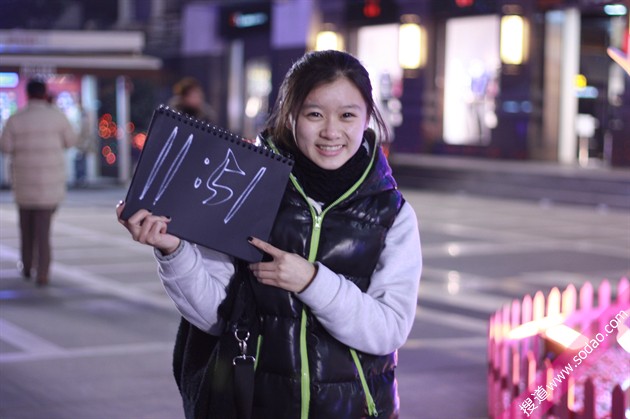 11:51
搜道 www.sodao.com